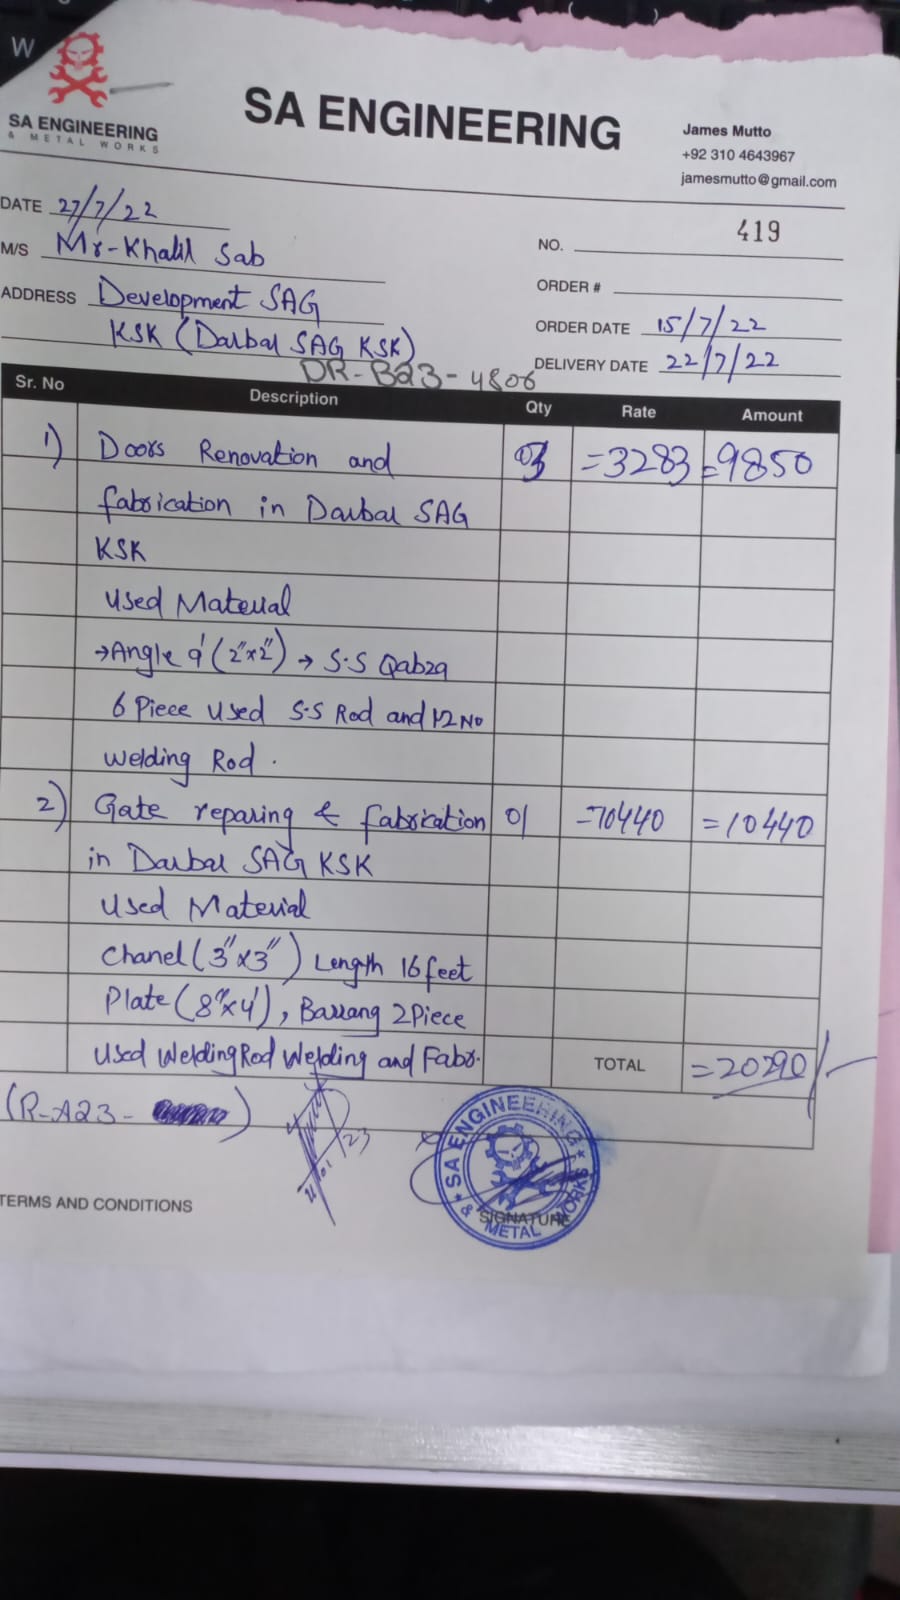 W
SA ENGINEERING
& METAL WORKS
SA ENGINEERING
James Mutto
+92 310 4643967
jamesmutto@gmail.com
DATE 27/7/22
NO. 419
M/S Mr-Khalil Sab
ORDER #
ADDRESS Development SAG
ORDER DATE 15/7/22
KSK (Darbar SAG KSK)
DELIVERY DATE 22/7/22
DR-B23-4806
Sr. No Description Qty Rate Amount
1) Doors Renovation and 03 =3283 =9850
fabrication in Darbar SAG
KSK
Used Material
→Angle 9' (2"x2") → S.S Qabza
6 Piece Used S.S Rod and 12 No
Welding Rod.
2) Gate reparing & fabrication 01 =10440 =10440
in Darbar SAG KSK
Used Material
Chanel (3"x3") Length 16 feet
Plate (8"x4'), Barrang 2 Piece
Used Welding Rod Welding and Fabr. TOTAL =20290/-
(R-A23- )
SA ENGINEERING
& METAL WORKS
SIGNATURE
TERMS AND CONDITIONS